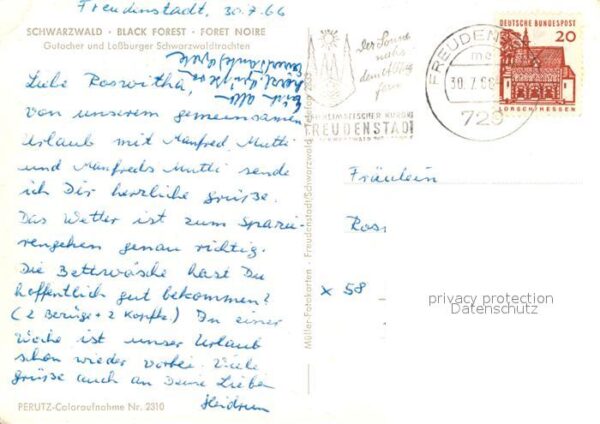 Freudenstadt, 30.7.66
SCHWARZWALD · BLACK FOREST · FORET NOIRE
Gutacher und Loßburger Schwarzwaldtrachten
Liebe Roswitha,
von unserem gemeinsamen
Urlaub mit Manfred Mutti
und Manfreds Mutti sende
ich Dir herzliche Grüße.
Das Wetter ist zum Spazie-
rengehen genau richtig.
Die Bettwäsche hast Du
hoffentlich gut bekommen?
(2 Bezüge + 2 Kopfk.) In einer
Woche ist unser Urlaub
schon wieder vorbei. Viele
Grüße auch an Deine Lieben
Heidrun
PERUTZ-Coloraufnahme Nr. 2310
Müller-Fotokarten · Freudenstadt/Schwarzwald
Der Sonne
nahe
dem Alltag
fern
HEILKLIMATISCHER KURORT
FREUDENSTADT
FREUDENS
30.7.66
729
DEUTSCHE BUNDESPOST
20
LORSCH/HESSEN
Fräulein
Ros
x 58
privacy protection
Datenschutz